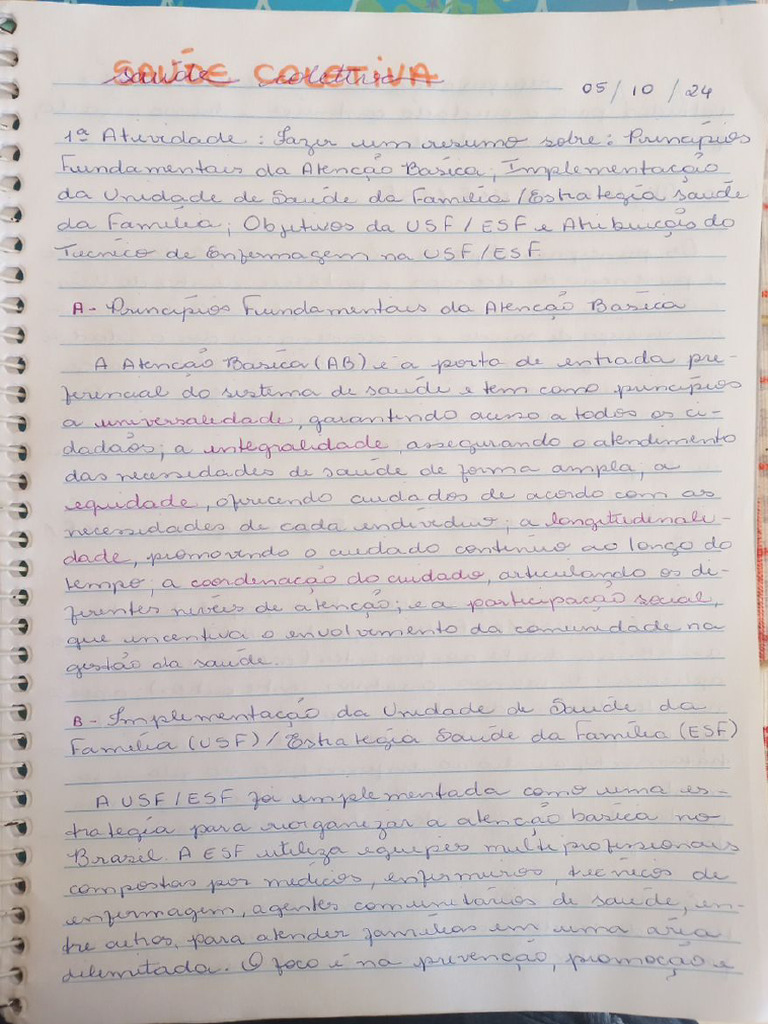 SAÚDE COLETIVA
05/10/24
1ª Atividade: Fazer um resumo sobre: Princípios
Fundamentais da Atenção Basica, Implementação
da Unidade de Saúde da Família/Estrategia saúde
da Família; Objetivos da USF/ESF e Atribuição do
Tecnico de Enfermagem na USF/ESF.
A- Princípios Fundamentais da Atenção Basica
A Atenção Basica (AB) é a porta de entrada pre-
ferencial do sistema de saúde e tem como princípios
a universalidade, garantindo acesso a todos os ci-
dadãos; a integralidade, assegurando o atendimento
das necessidades de saúde de forma ampla; a
equidade, oferecendo cuidados de acordo com as
necessidades de cada indivíduo; a longitudinali-
dade, promovendo o cuidado contínuo ao longo do
tempo; a coordenação do cuidado, articulando os di-
ferentes níveis de atenção; e a participação social,
que incentiva o envolvimento da comunidade na
gestão da saúde.
B- Implementação da Unidade de Saúde da
Família (USF)/Estrategia Saúde da Família (ESF)
A USF/ESF foi implementada como uma es-
trategia para reorganizar a atenção basica no
Brasil. A ESF utiliza equipes multiprofissionais
compostas por medicos, enfermeiros, tecnicos de
enfermagem, agentes comunitários de saúde, en-
tre outros, para atender famílias em uma área
delimitada. O foco é na prevenção, promoção e